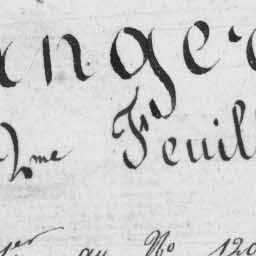 ange
2me Feuil
er au No 120